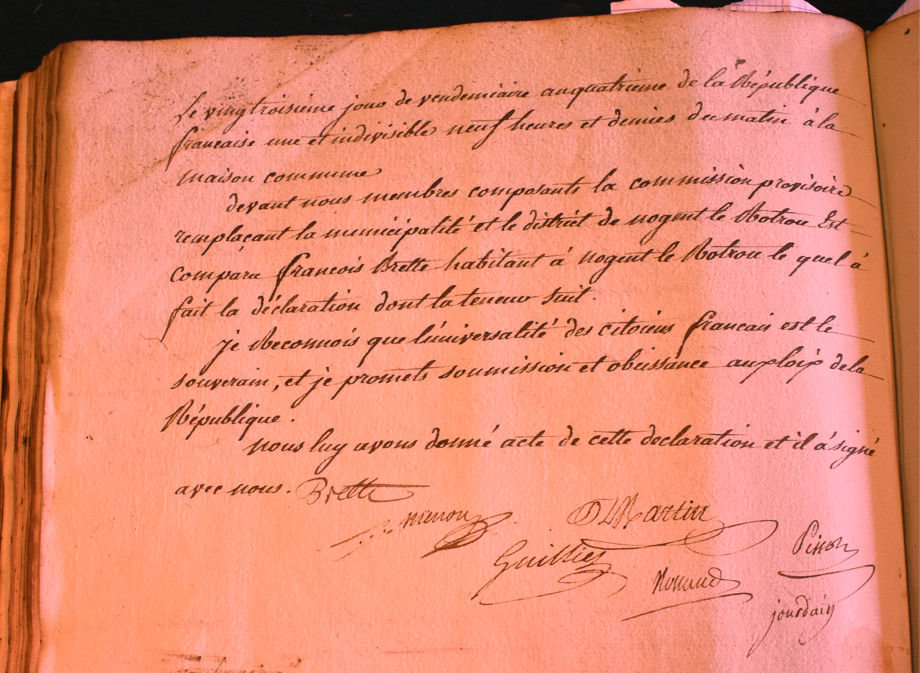 Le vingtroisieme jour de vendemiaire anquatrieme de la République
francaise une et indivisible neuf heures et demies du matin à la
maison commune
devant nous membres composants la commission provisoire
remplaçant la municipalité et le district de nogent le Rotrou Est
comparu francois Brette habitant à nogent le Rotrou le quel à
fait la déclaration dont la teneur suit.
je Reconnois que l'universalité des citoiens francais est le
souverain, et je promets soumission et obeissance aux loix de la
République.
nous luy avons donné acte de cette declaration et il à signé
avec nous. Brette
Martin
Guillier
jourdain